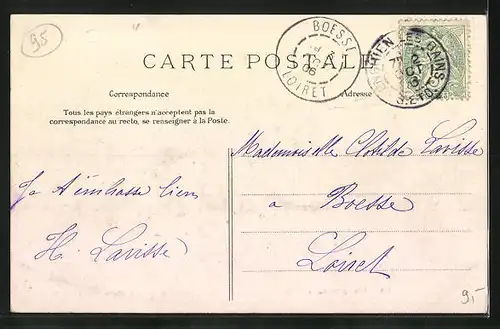 95
BOESSE
LOIRET
06
ENGHIEN LES BAINS
S.&O.
CARTE POSTALE
Correspondance
Adresse
Tous les pays étrangers n'acceptent pas la
correspondance au recto, se renseigner à la Poste.
Mademoiselle Clotilde Lavisse
à Boesse
Loiret
Je t'embrasse bien
H. Lavisse
9,-